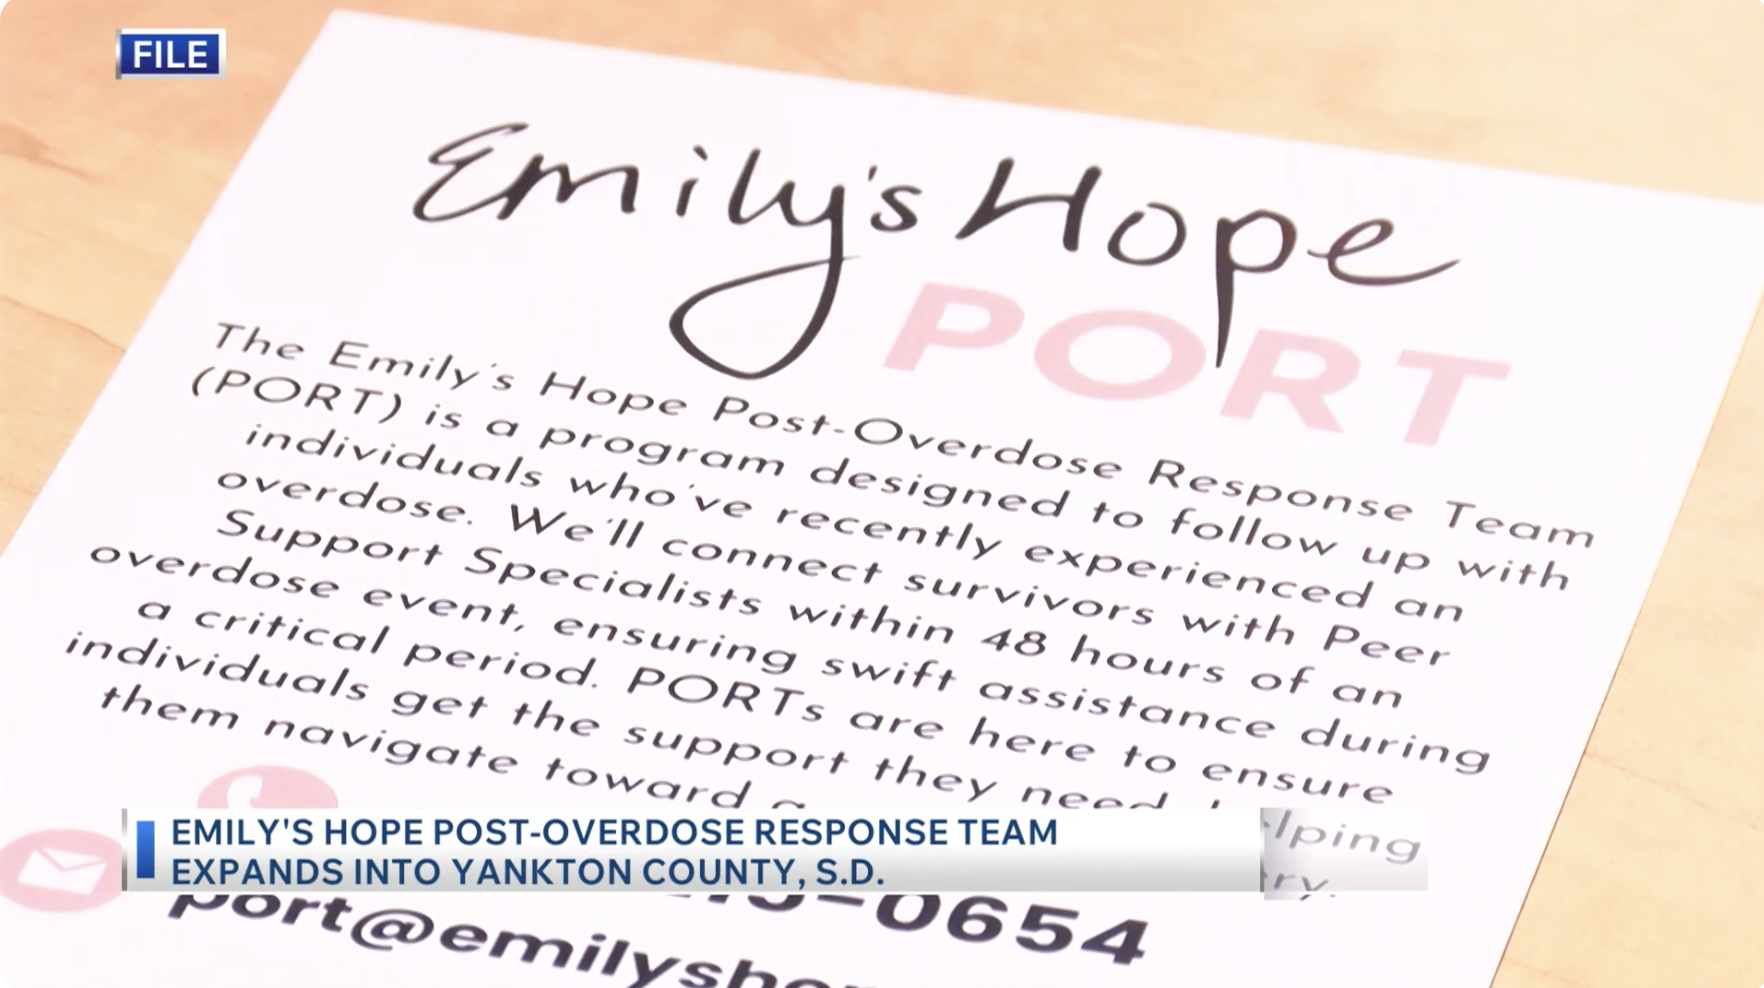 FILE
Emily's Hope
PORT
The Emily's Hope Post-Overdose Response Team
(PORT) is a program designed to follow up with
individuals who've recently experienced an
overdose. We'll connect survivors with Peer
Support Specialists within 48 hours of an
overdose event, ensuring swift assistance during
a critical period. PORTs are here to ensure
individuals get the support they need,
them navigate toward a
EMILY'S HOPE POST-OVERDOSE RESPONSE TEAM
EXPANDS INTO YANKTON COUNTY, S.D.
-0654
port@emilysho